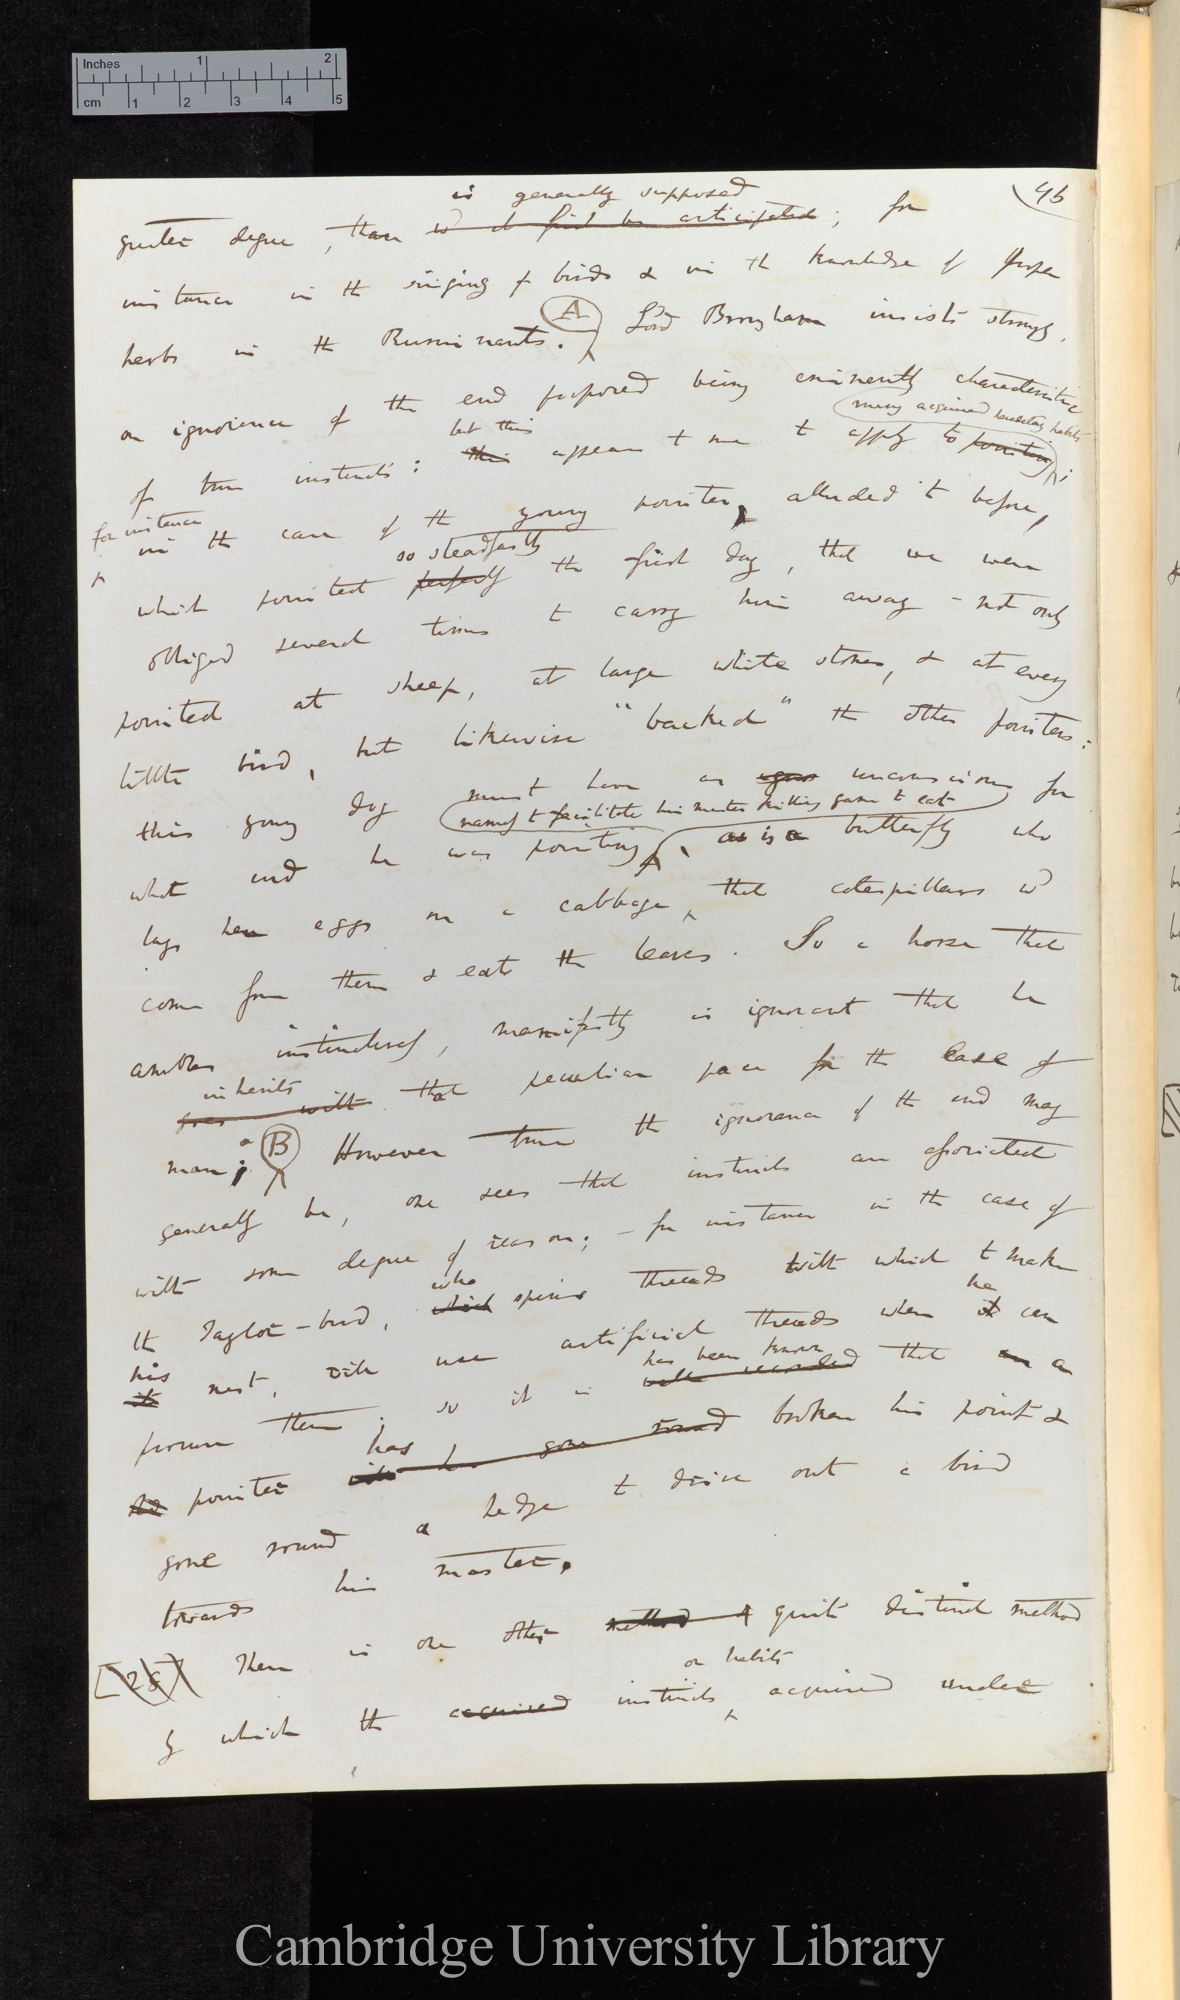 Inches 1 2
cm 1 2 3 4 5
46
is generally supposed
greater degree, than wd at first be anticipated; for
instance in th singing of birds & in th knowledge of proper
herbs in th Ruminants. A Lord Brougham insists strongly
on ignorance of the end proposed being eminently characteristic
many acquired hereditary habits
but this
of true instincts: this appears to me to apply to pointing;
for instance
in th case of th young pointer, alluded to before,
so steadfastly
which pointed perfectly the first day, that we were
obliged several times to carry him away – not only
pointed at sheep, at large white stones, & at every
little bird, but likewise "backed" th other pointers:
this young dog must have been as unconscious for
namely to facilitate his master killing game to eat
what end he was pointing, as is a butterfly who
lays her eggs on a cabbage, that caterpillars wd
come from them & eat th leaves. So a horse that
ambles instinctively, manifestly is ignorant that he
inherits
goes with that peculiar pace for th ease of
man; B However true th ignorance of th end may
generally be, one sees that instincts are associated
with some degree of reason; – for instance in th case of
who
th Taylor-bird, which spins threads with which to make
his he
it nest, will use artificial threads when it can
has been known
procure them; so it is well recorded that an a
has
old pointer will have gone round broken his point &
gone round a hedge to drive out a bird
towards his master.
[28 There is one other method of quite distinct method
or habits
by which the acquired instincts acquired under
Cambridge University Library